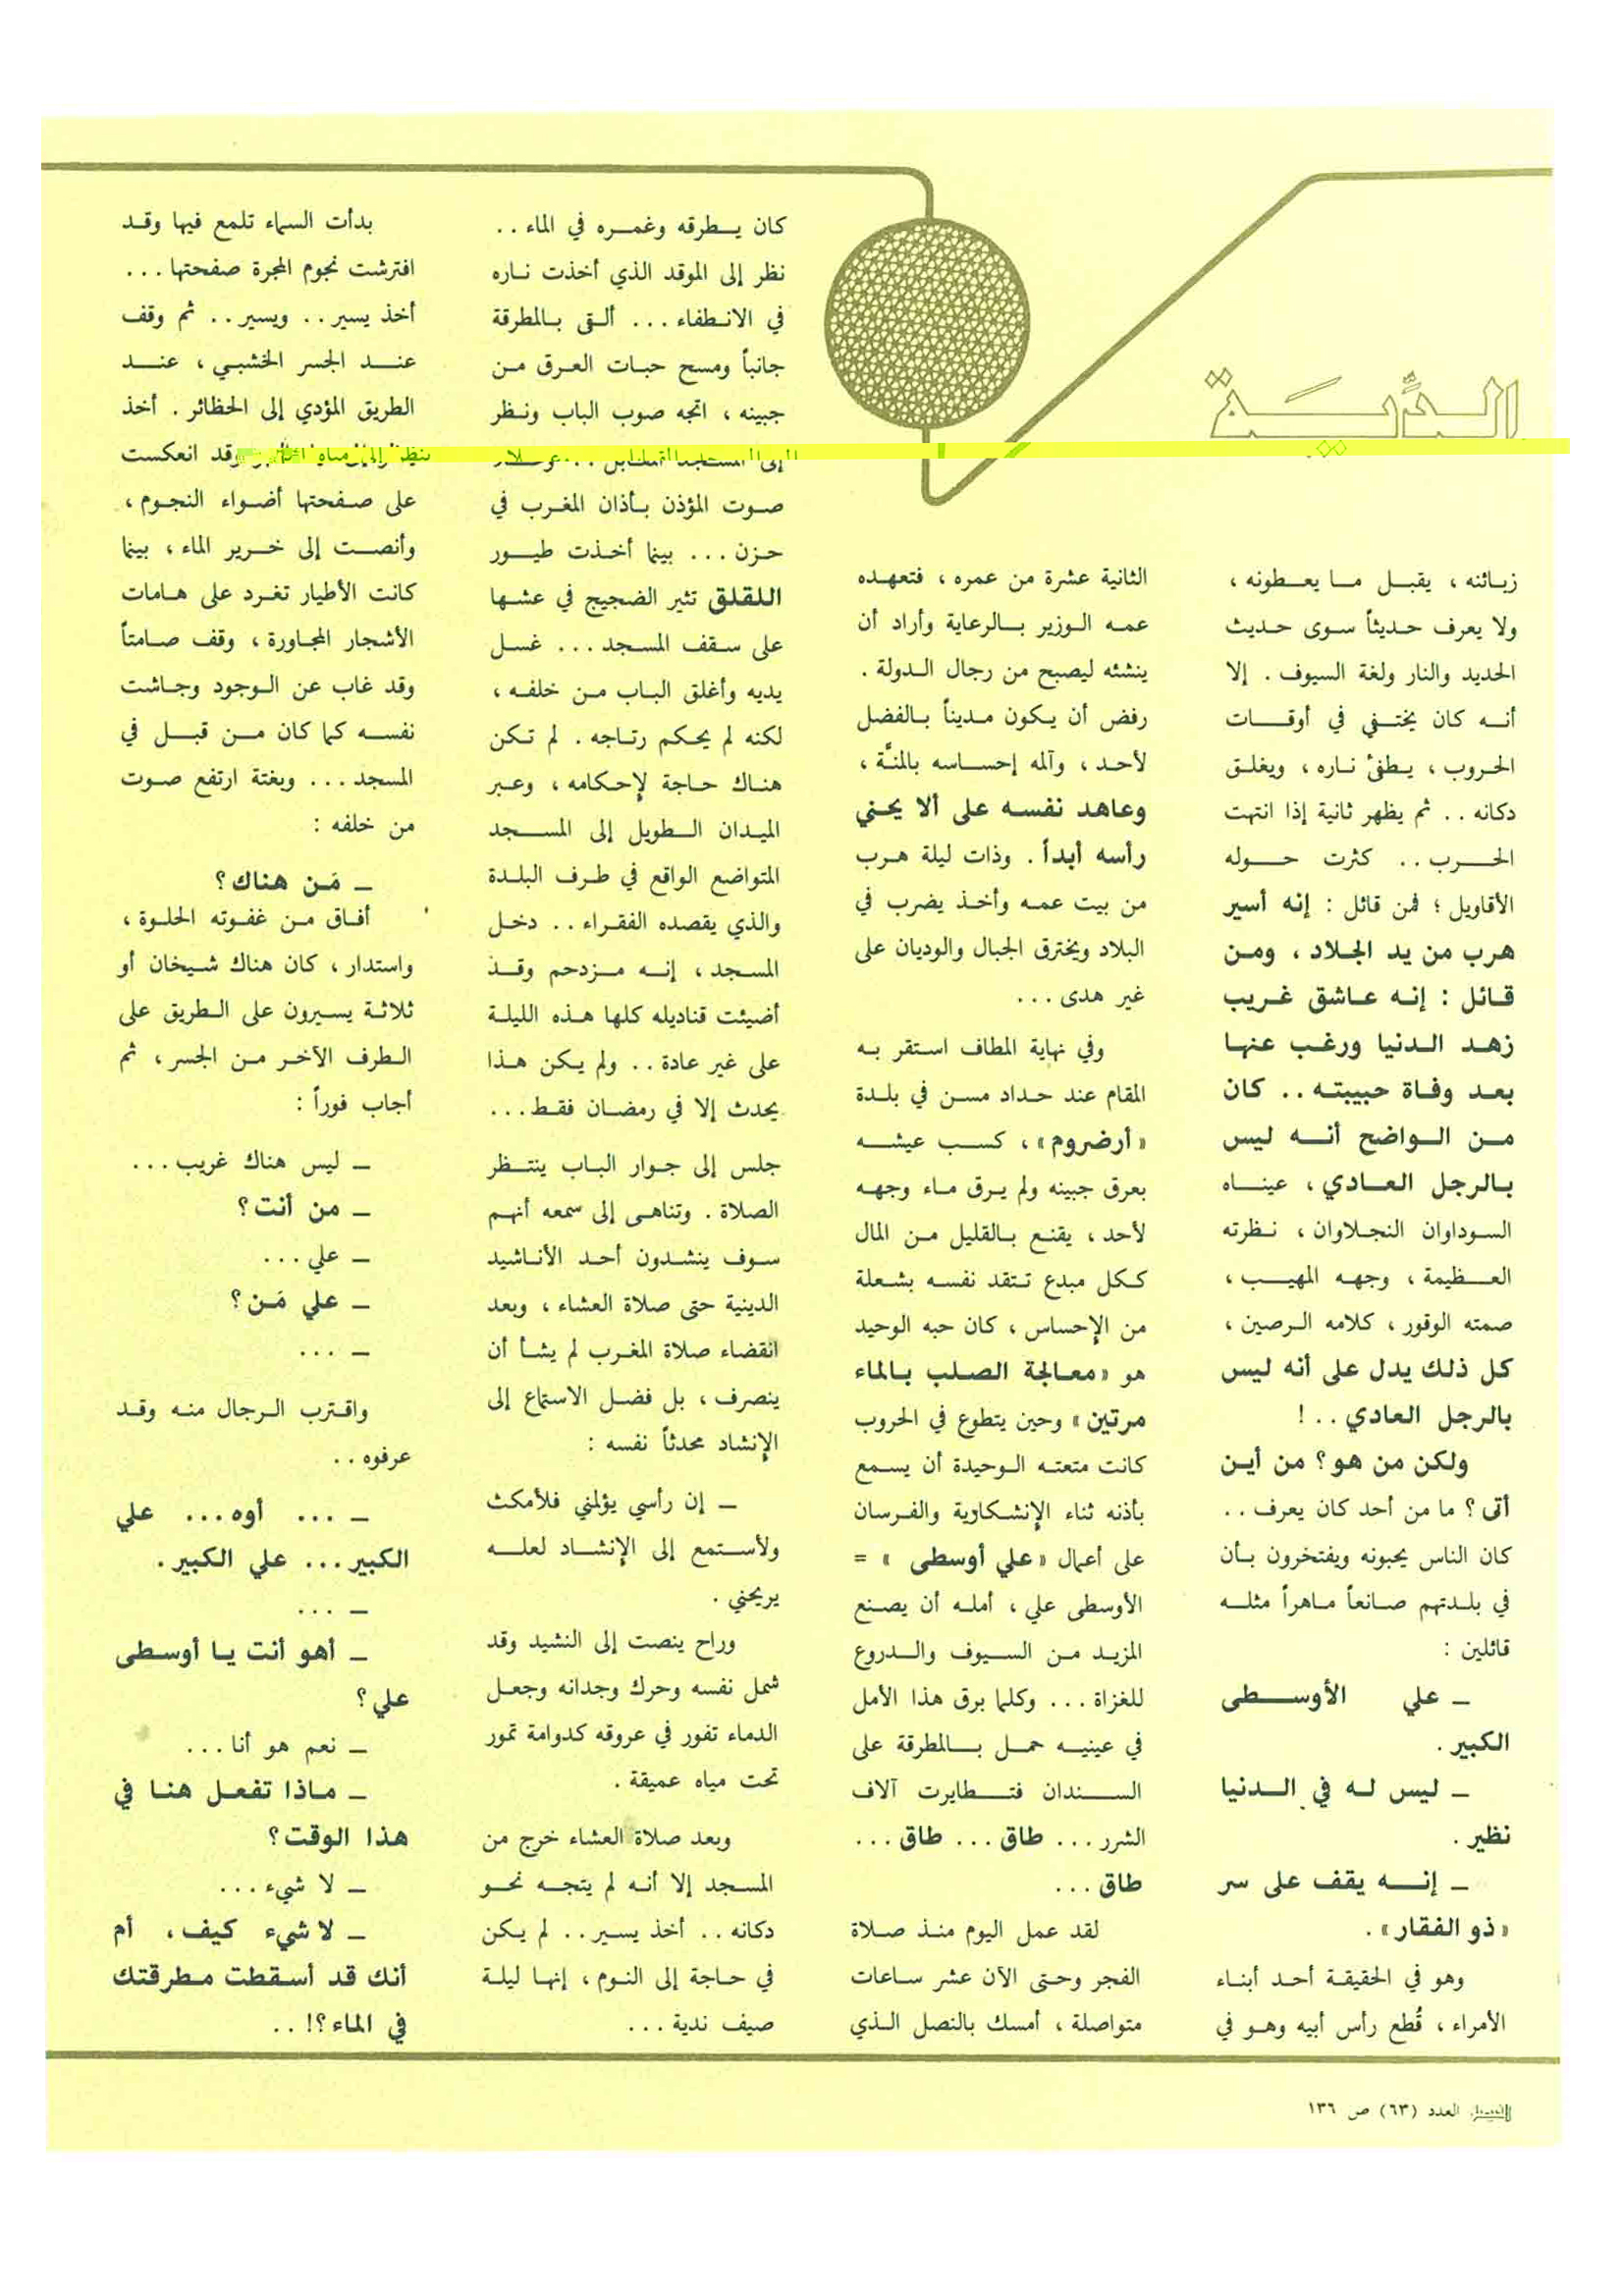 الدِّيَة
زبائنه ، يقبل ما يعطونه ،
ولا يعرف حديثاً سوى حديث
الحديد والنار ولغة السيوف . إلا
أنه كان يختفي في أوقات
الحروب ، يطفئ ناره ، ويغلق
دكانه .. ثم يظهر ثانية إذا انتهت
الحرب .. كثرت حوله
الأقاويل ؛ فمن قائل : إنه أسير
هرب من يد الجلاد ، ومن
قائل : إنه عاشق غريب
زهد الدنيا ورغب عنها
بعد وفاة حبيبته .. كان
من الواضح أنه ليس
بالرجل العادي ، عيناه
السوداوان النجلاوان ، نظرته
العظيمة ، وجهه المهيب ،
صمته الوقور ، كلامه الرصين ،
كل ذلك يدل على أنه ليس
بالرجل العادي .. !
ولكن من هو ؟ من أين
أتى ؟ ما من أحد كان يعرف ..
كان الناس يحبونه ويفتخرون بأن
في بلدتهم صانعاً ماهراً مثله
قائلين :
ــ علي الأوسطى
الكبير .
ــ ليس له في الدنيا
نظير .
ــ إنه يقف على سر
« ذو الفقار » .
وهو في الحقيقة أحد أبناء
الأمراء ، قُطع رأس أبيه وهو في
الثانية عشرة من عمره ، فتعهده
عمه الوزير بالرعاية وأراد أن
ينشئه ليصبح من رجال الدولة .
رفض أن يكون مديناً بالفضل
لأحد ، وآلمه إحساسه بالمنَّة ،
وعاهد نفسه على ألا يحني
رأسه أبداً . وذات ليلة هرب
من بيت عمه وأخذ يضرب في
البلاد ويخترق الجبال والوديان على
غير هدى ...
وفي نهاية المطاف استقر به
المقام عند حداد مسن في بلدة
« أرضروم » ، كسب عيشه
بعرق جبينه ولم يرق ماء وجهه
لأحد ، يقنع بالقليل من المال
ككل مبدع تتقد نفسه بشعلة
من الإحساس ، كان حبه الوحيد
هو « معالجة الصلب بالماء
مرتين » وحين يتطوع في الحروب
كانت متعته الوحيدة أن يسمع
بأذنه ثناء الإنشكارية والفرسان
على أعمال « علي أوسطى » =
الأوسطى علي ، أمله أن يصنع
المزيد من السيوف والدروع
للغزاة ... وكلما برق هذا الأمل
في عينيه حمل بالمطرقة على
السندان فتطايرت آلاف
الشرر ... طاق ... طاق ...
طاق ...
لقد عمل اليوم منذ صلاة
الفجر وحتى الآن عشر ساعات
متواصلة ، أمسك بالنصل الذي
كان يطرقه وغمره في الماء ..
نظر إلى الموقد الذي أخذت ناره
في الانطفاء ... ألقى بالمطرقة
جانباً ومسح حبات العرق من
جبينه ، اتجه صوب الباب ونظر
إلى المسجد
صوت المؤذن بأذان المغرب في
حزن ... بينما أخذت طيور
اللقلق تثير الضجيج في عشها
على سقف المسجد ... غسل
يديه وأغلق الباب من خلفه ،
لكنه لم يحكم رتاجه . لم تكن
هناك حاجة لإحكامه ، وعبر
الميدان الطويل إلى المسجد
المتواضع الواقع في طرف البلدة
والذي يقصده الفقراء .. دخل
المسجد ، إنه مزدحم وقد
أضيئت قناديله كلها هذه الليلة
على غير عادة .. ولم يكن هذا
يحدث إلا في رمضان فقط ...
جلس إلى جوار الباب ينتظر
الصلاة . وتناهى إلى سمعه أنهم
سوف ينشدون أحد الأناشيد
الدينية حتى صلاة العشاء ، وبعد
انقضاء صلاة المغرب لم يشأ أن
ينصرف ، بل فضل الاستماع إلى
الإنشاد محدثاً نفسه :
ــ إن رأسي يؤلمني فلأمكث
ولأستمع إلى الإنشاد لعله
يريحني .
وراح ينصت إلى النشيد وقد
شمل نفسه وحرك وجدانه وجعل
الدماء تفور في عروقه كدوامة تمور
تحت مياه عميقة .
وبعد صلاة العشاء خرج من
المسجد إلا أنه لم يتجه نحو
دكانه .. أخذ يسير .. لم يكن
في حاجة إلى النوم ، إنها ليلة
صيف ندية ...
بدأت السماء تلمع فيها وقد
افترشت نجوم المجرة صفحتها ...
أخذ يسير .. ويسير .. ثم وقف
عند الجسر الخشبي ، عند
الطريق المؤدي إلى الحظائر . أخذ
ينظر إلى مياه وقد انعكست
على صفحتها أضواء النجوم ،
وأنصت إلى خرير الماء ، بينما
كانت الأطيار تغرد على هامات
الأشجار المجاورة ، وقف صامتاً
وقد غاب عن الوجود وجاشت
نفسه كما كان من قبل في
المسجد ... وبغتة ارتفع صوت
من خلفه :
ــ مَن هناك ؟
أفاق من غفوته الحلوة ،
واستدار ، كان هناك شيخان أو
ثلاثة يسيرون على الطريق على
الطرف الآخر من الجسر ، ثم
أجاب فوراً :
ــ ليس هناك غريب ...
ــ من أنت ؟
ــ علي ...
ــ علي مَن ؟
ــ ...
واقترب الرجال منه وقد
عرفوه ..
ــ ... أوه ... علي
الكبير ... علي الكبير .
ــ ...
ــ أهو أنت يا أوسطى
علي ؟
ــ نعم هو أنا ...
ــ ماذا تفعل هنا في
هذا الوقت ؟
ــ لا شيء ...
ــ لا شيء كيف ، أم
أنك قد أسقطت مطرقتك
في الماء ؟! ..
الفيصل العدد (٦٣) ص ١٣٦